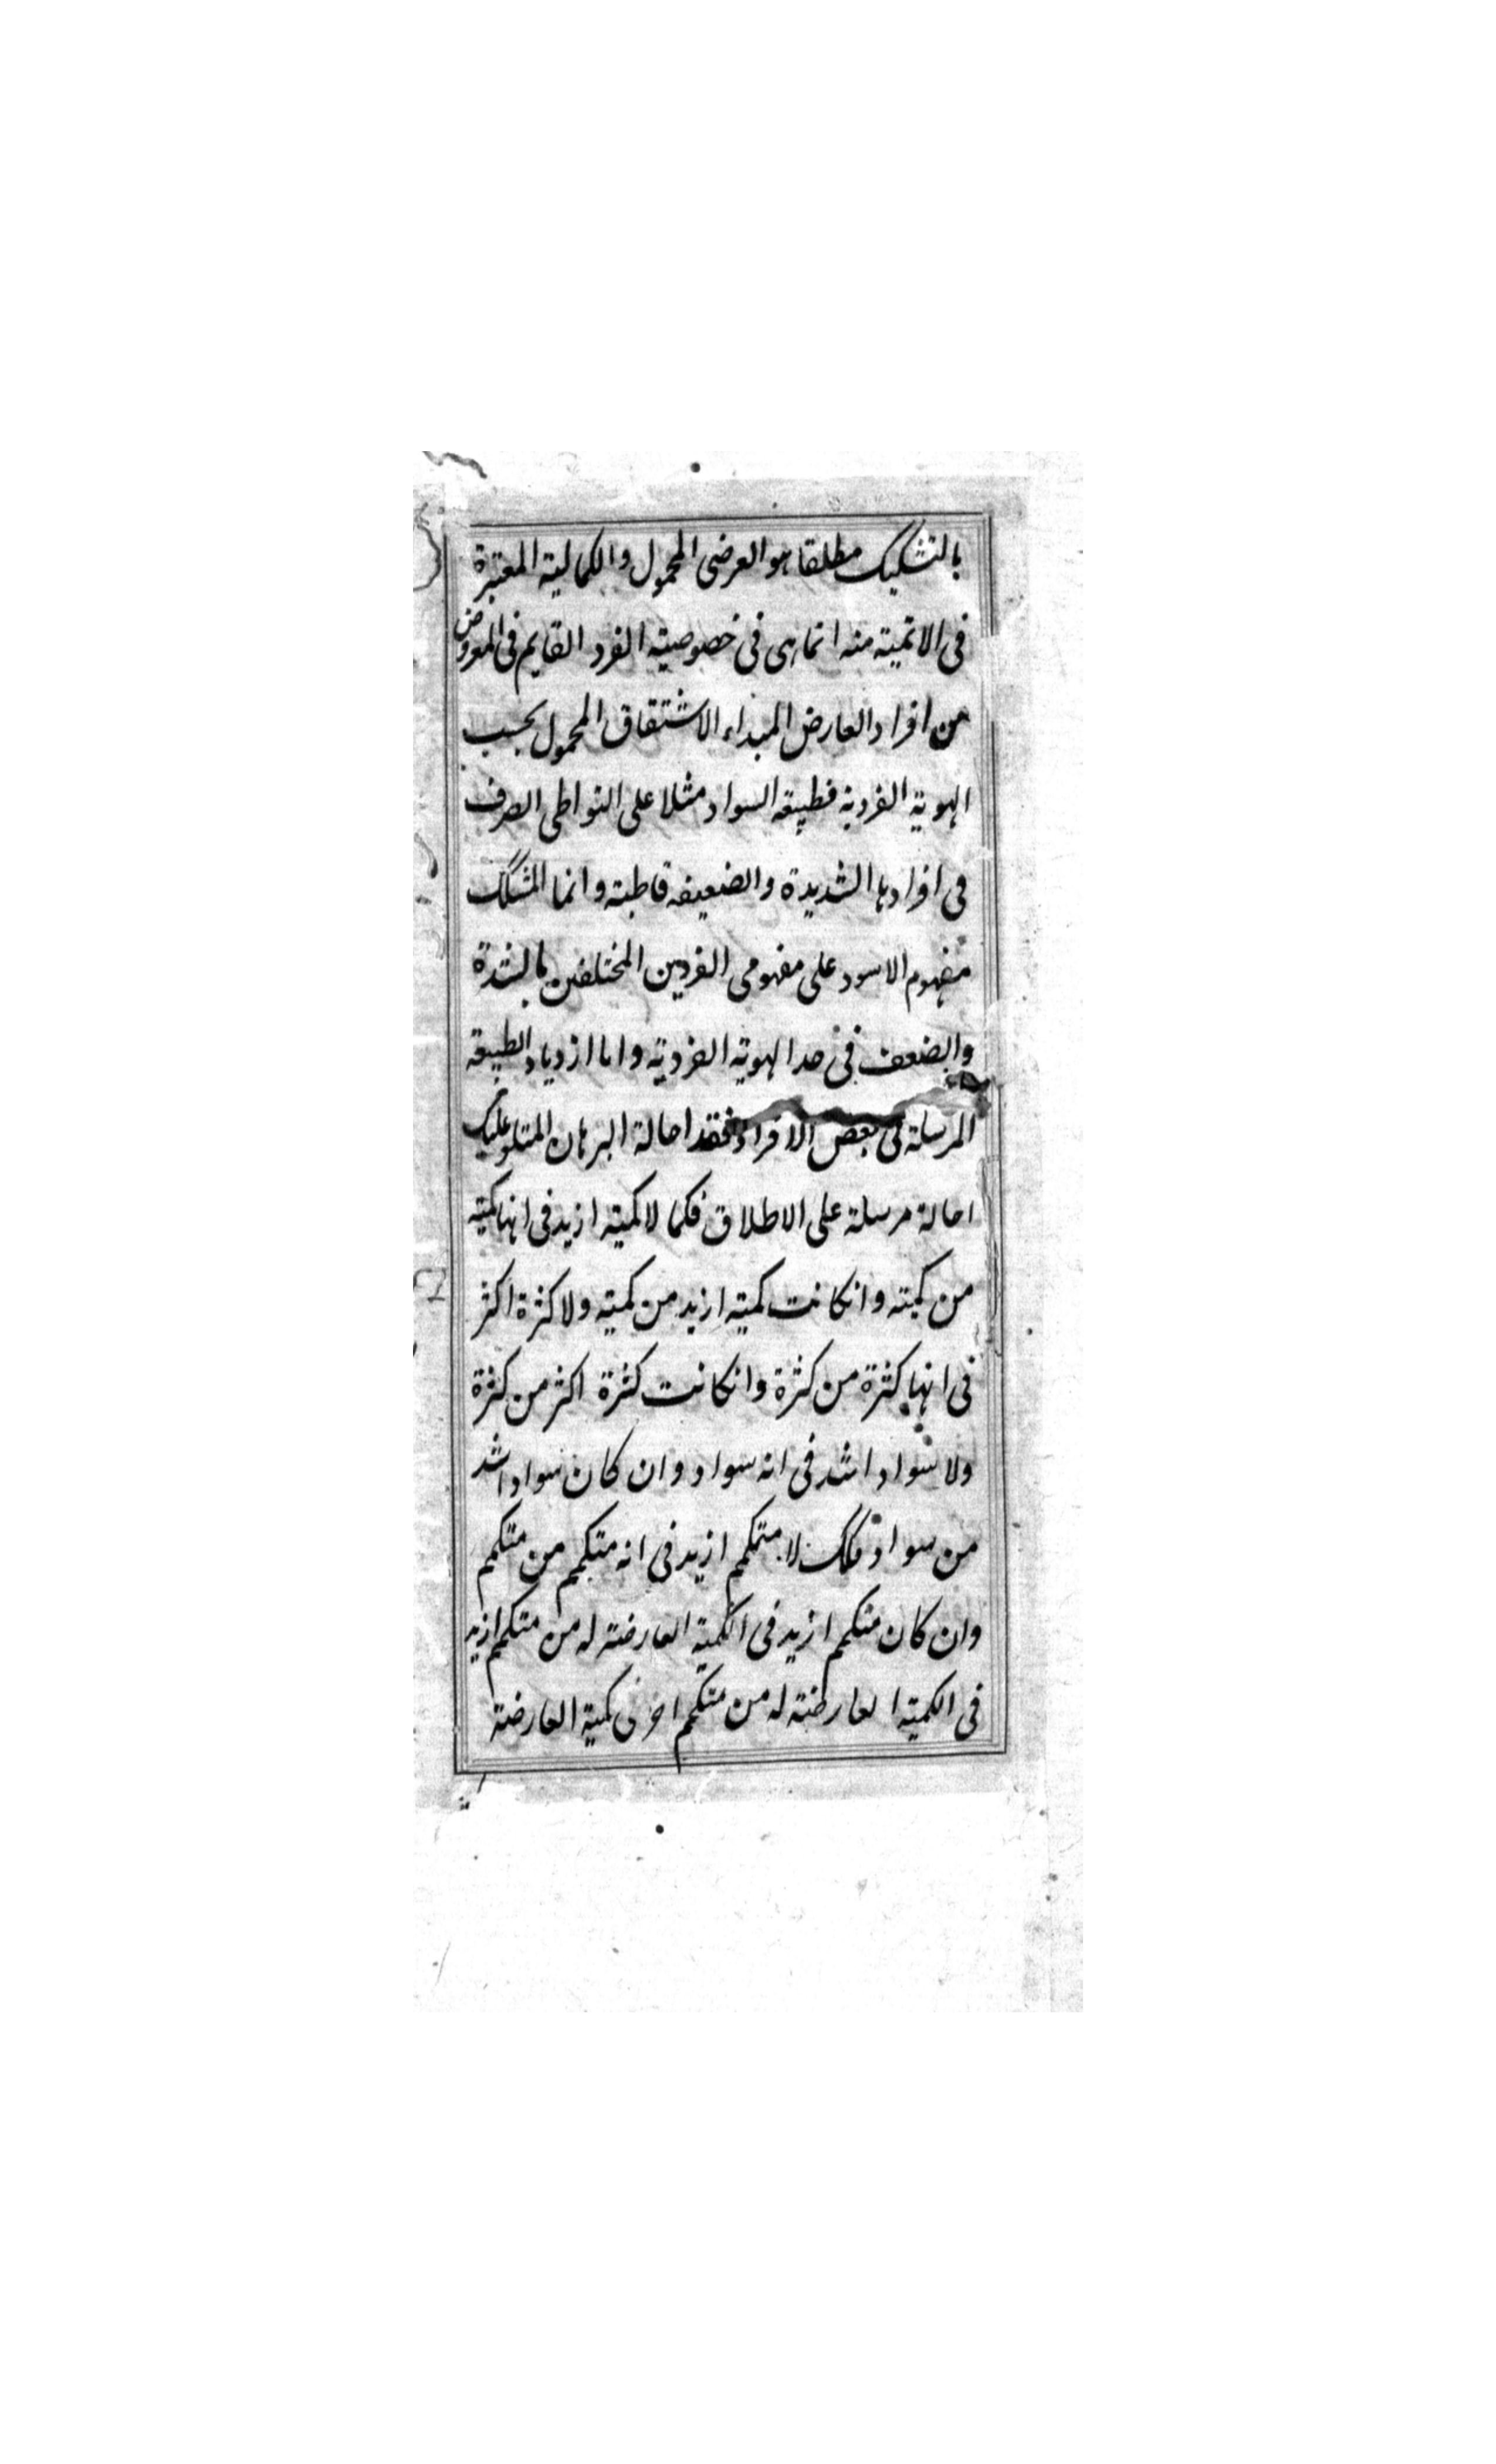 بالتشكيك مطلقا هو العرضى المحمول والكمالية المعتبرة
فى الاتمية منه انما هى فى خصوصية الفرد القايم فى المعروض
من افراد العارض المبداء الاشتقاق المحمول بحسب
الهوية الفردية فطبيعة السواد مثلا على التواطى الصرف
فى افرادها الشديدة والضعيفة قاطبة وانما المشكك
مفهوم الاسود على مفهومى الفردين المختلفين بالشدة
والضعف فى حد الهوية الفردية واما ازدياد الطبيعة
المرسلة فى بعض الافراد فقد احالة البرهان المتلو عليك
احالة مرسلة على الاطلاق فكما لا كمية ازيد فى انها كمية
من كمية وانكانت كمية ازيد من كمية ولا كثرة اكثر
فى انها كثرة من كثرة وانكانت كثرة اكثر من كثرة
ولا سواد اشد فى انه سواد وان كان سواد اشد
من سواد فكك لا متكمم ازيد فى انه متكمم من متكمم
وان كان متكمم ازيد فى الكمية العارضة له من متكمم ازيد
فى الكمية العارضة له من متكمم اخر فى كمية العارضة